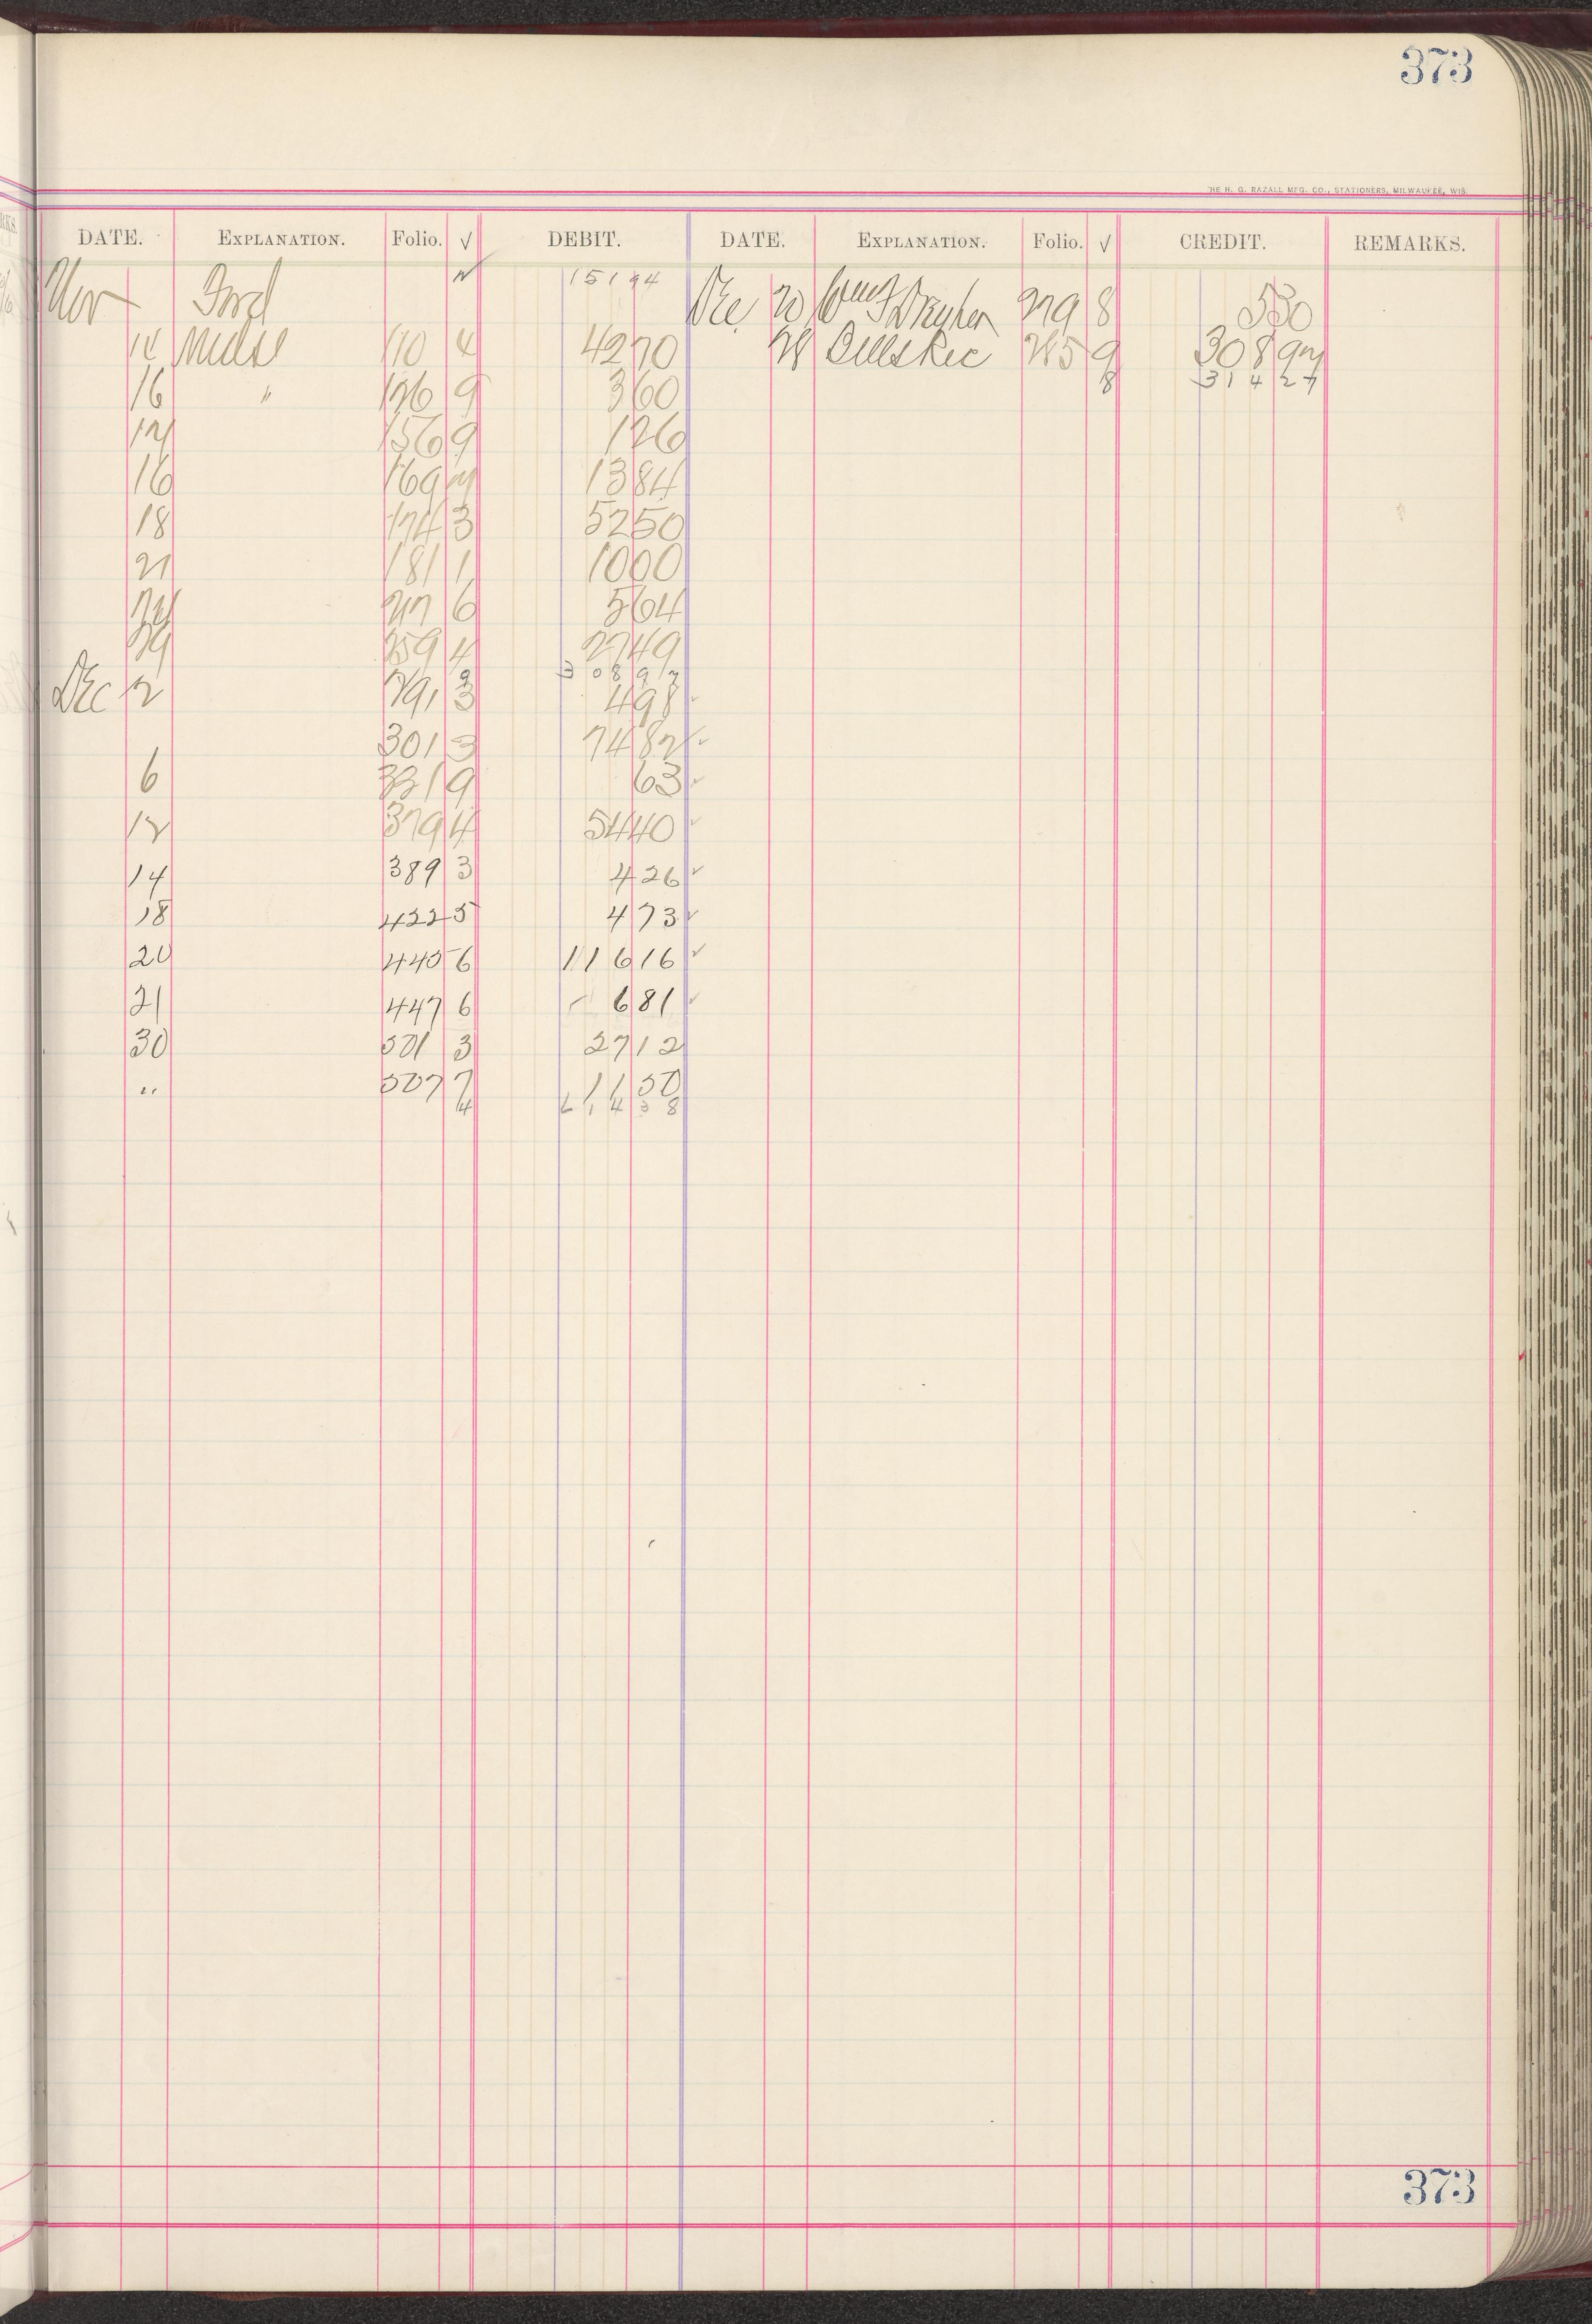 373
THE H. G. RAZALL MFG. CO., STATIONERS, MILWAUKEE, WIS.
DATE. EXPLANATION. Folio. √ DEBIT. DATE. EXPLANATION. Folio. √ CREDIT. REMARKS.
Nov Ford 151 94 Dec 20 279 8 5 30
14 Mdse 110 4 42 70 28 Bills Rec 285 9 308 97
16 " 126 9 3 60 8 314 27
156 9 1 26
16 169 7 13 84
18 174 3 52 50
21 181 1 10 00
217 6 5 64
29 259 4 27 49
9 308 97
Dec 2 291 3 4 98 ✓
301 3 74 82 ✓
6 331 9 63 ✓
12 379 4 54 40 ✓
14 389 3 4 26 ✓
18 422 5 4 73 ✓
20 440 6 116 16 ✓
21 447 6 6 81 ✓
30 501 3 27 12
" 507 7 11 50
4 614 38
373